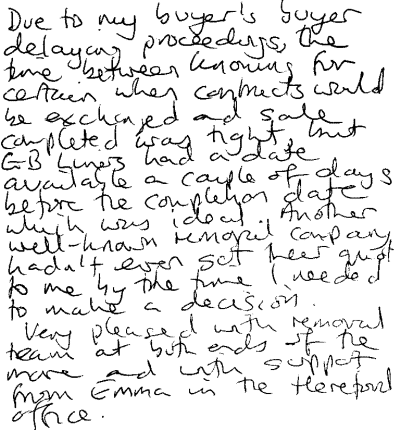 Due to my buyer's buyer
delaying proceedings, the
time between knowing for
certain when contracts would
be exchanged and sale
completed was tight, but
GB Liners had a date
available a couple of days
before the completion date
which was ideal. Another
well-known removal company
hadn't even sent their quote
to me by the time I needed
to make a decision.
Very pleased with removal
team at both ends of the
move and with support
from Emma in the Hereford
office.